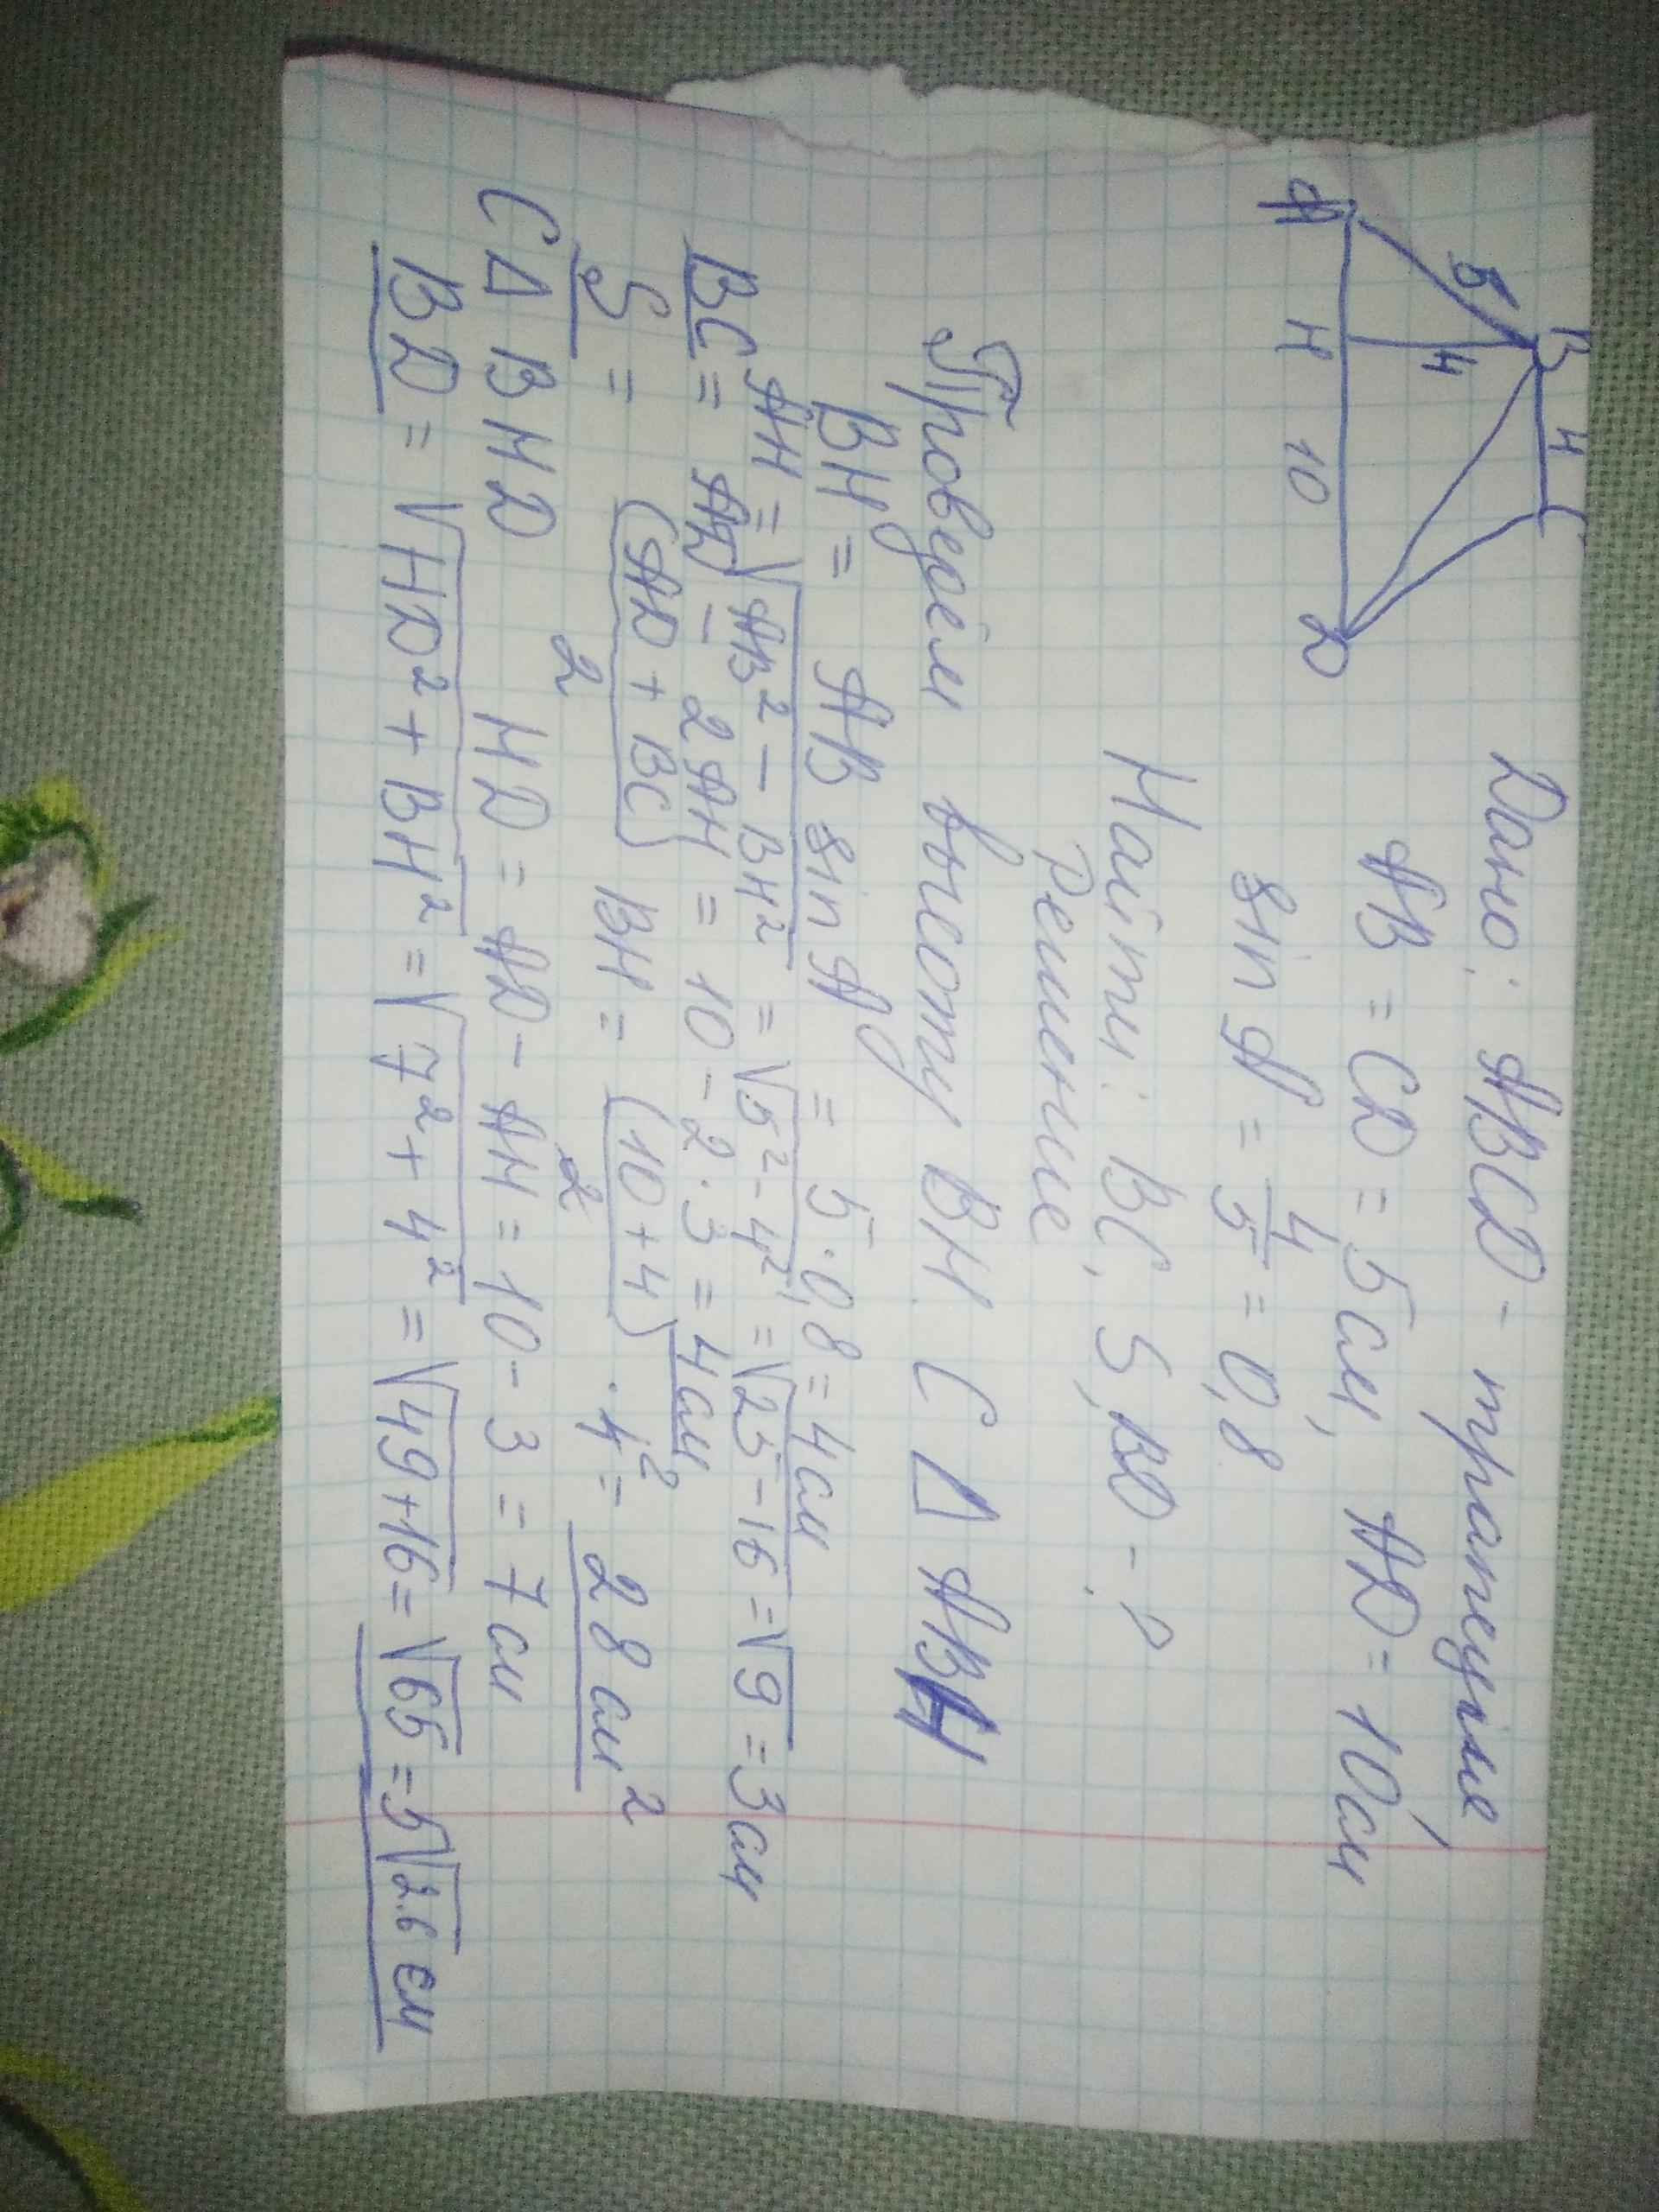 B 4 C
5 4
A H 10 D
Дано: ABCD - трапеция,
AB = CD = 5 см, AD = 10 см
sin A = 4/5 = 0,8
Найти: BC, S, BD - ?
Решение
Проведём высоту BH. С Δ ABH
BH = AB sin A = 5 · 0,8 = 4 см
AH = √AB² - BH² = √5² - 4² = √25 - 16 = √9 = 3 см
BC = AD - 2AH = 10 - 2 · 3 = 4 см
S = (AD + BC)/2 BH = (10 + 4)/2 · 4² = 28 см²
С Δ BHD HD = AD - AH = 10 - 3 = 7 см
BD = √HD² + BH² = √7² + 4² = √49 + 16 = √65 = 5√2.6 см